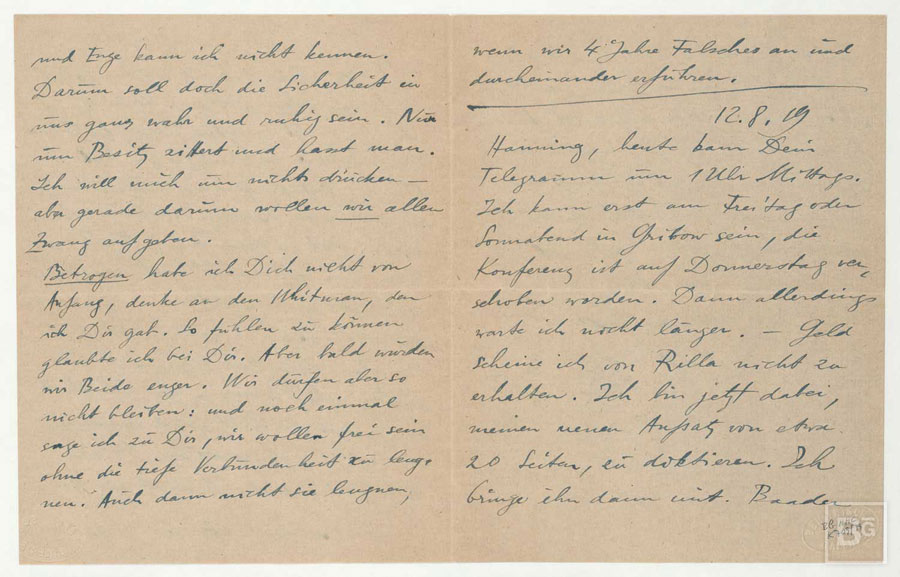 und Enge kann ich nicht kennen.
Darum soll doch die Sicherheit in
uns ganz wahr und ruhig sein. Nur
um Besitz zittert und hasst man.
Ich will mich um nichts drücken –
aber gerade darum wollen wir allen
Zwang aufgeben.
Betrogen habe ich Dich nicht von
Anfang, denke an den Whitman, den
ich Dir gab. So fühlen zu können
glaubte ich bei Dir. Aber bald wurden
wir Beide enger. Wir dürfen aber so
nicht bleiben: und noch einmal
sage ich zu Dir, wir wollen frei sein
ohne die tiefe Verbundenheit zu leug-
nen. Auch dann nicht sie leugnen,
wenn wir 4 Jahre Falsches an und
durcheinander erführen.
12.8.19
Hanning, heute kam Dein
Telegramm um 1 Uhr Mittags.
Ich kann erst am Freitag oder
Sonnabend in Gribow sein, die
Konferenz ist auf Donnerstag ver-
schoben worden. Dann allerdings
warte ich nicht länger. – Geld
scheine ich von Rilla nicht zu
erhalten. Ich bin jetzt dabei,
meinen neuen Aufsatz, von etwa
20 Seiten, zu diktieren. Ich
bringe ihn dann mit. Baader
BG